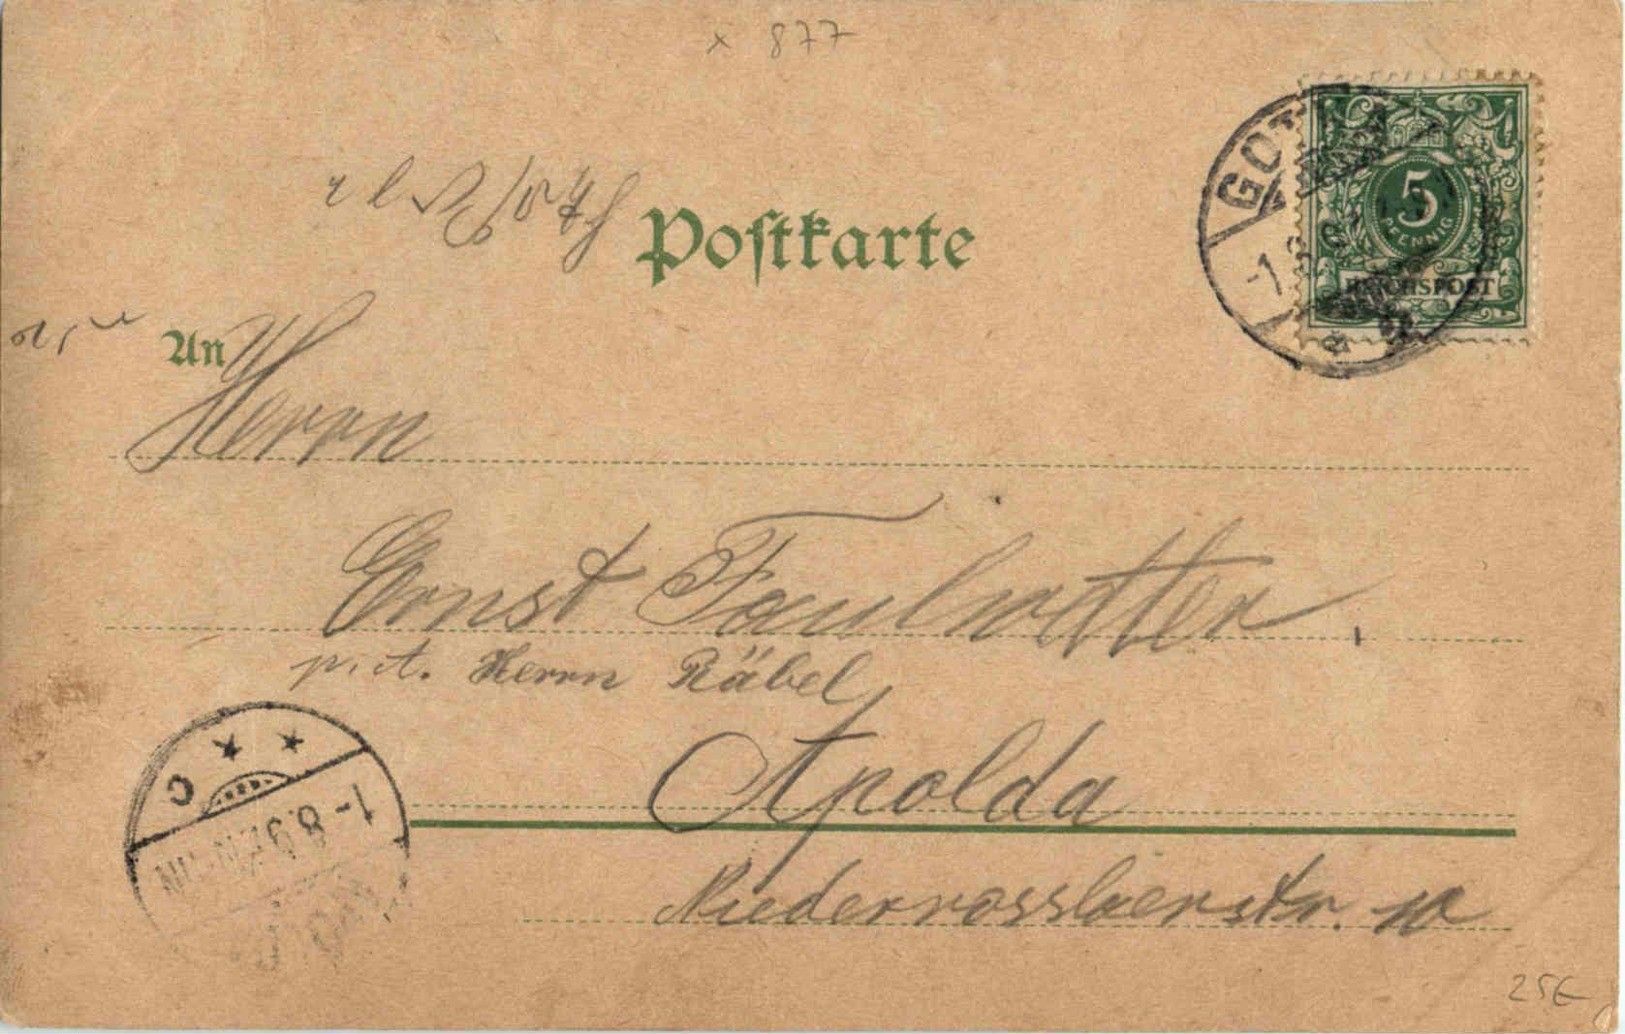 x 877
Postkarte
GOT
5
PFENNIG
REICHSPOST
An
Herrn
Ernst Faulwetter,
p. A. Herrn Räbel
Apolda
Niederrosslaerstr. 10
* * C
1-8.9
25€